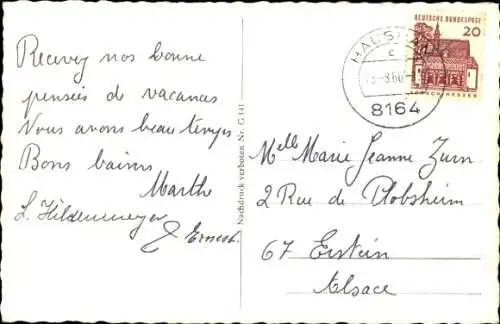 Recevez nos bonne
pensées de vacances
Vous avons beau temps
Bons baisers
Marthe
L. Hildenmeyer
& Ernest.
Nachdruck verboten. Nr. G 141
DEUTSCHE BUNDESPOST
20
HAUSHAM
c
8164
LORSCH HESSEN
Melle Marie Jeanne Zurn
2 Rue de Plobsheim
67 Erstein
Alsace